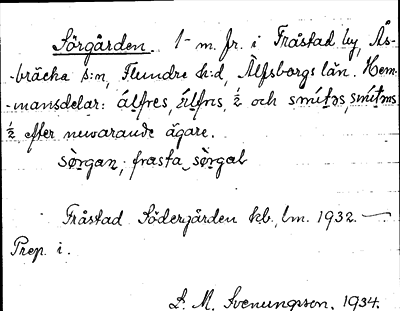 Sörgården. 1 m. fr. i Fråstad by, Ås-
-bräcka s:n, Flundre h:d, Älfsborgs län. Hem-
-mansdelar: álfres, álfrıs, ½ och smı́təs, smı́təns
½ efter nuvarande ägare.
sö̀rgan, frasta sö̀rgaḷ
Fråstad Södergården kb., lm. 1932. —
Prep. i.
S. M. Svenungsson, 1934.